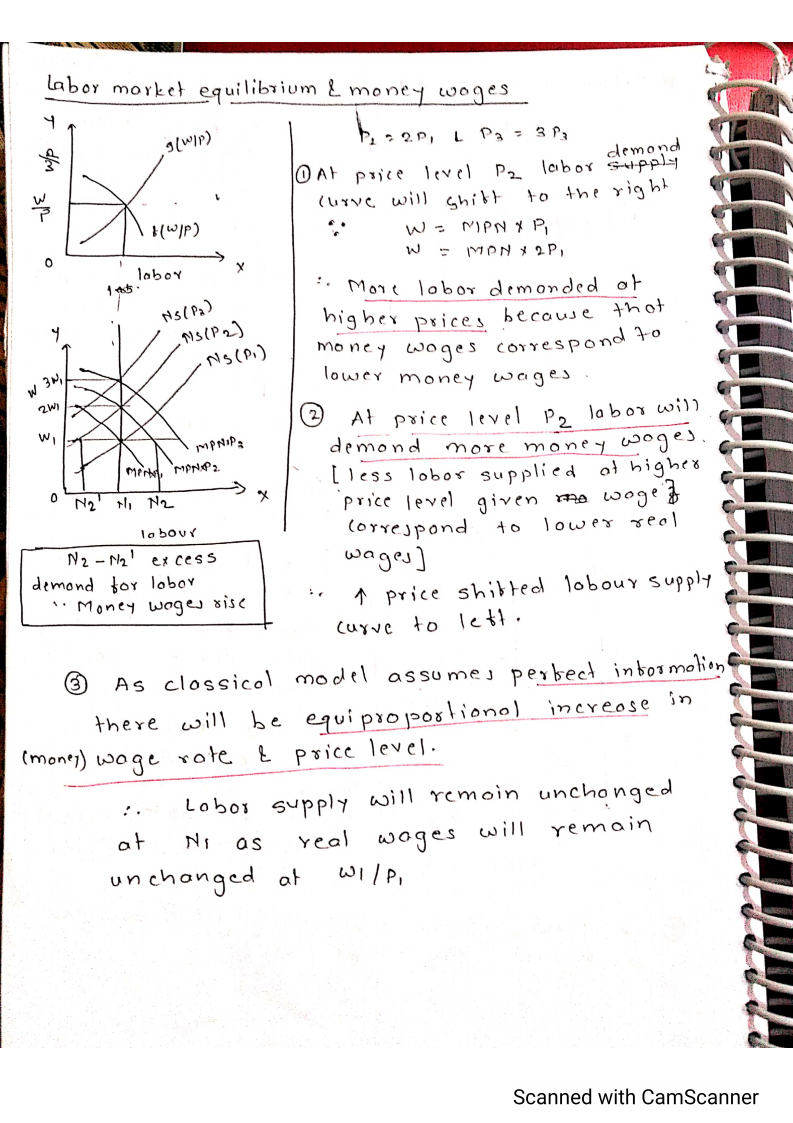 Labor market equilibrium & money wages
Y
W/P
g(W/P)
W/P
f(W/P)
O
labor
X
Y
NS(P3)
NS(P2)
NS(P1)
W
3W1
2W1
W1
MPNxP3
MPNxP2
O
N2'
N1
N2
X
labour
N2 - N2' excess
demand for labor
∵ Money wages rise
P2 = 2P1 L P3 = 3P3
① At price level P2 labor demand supply
curve will shift to the right
∵ W = MPN x P1
W = MPN x 2P1
∴ More labor demanded at
higher prices because that
money wages correspond to
lower money wages.
② At price level P2 labor will
demand more money wages.
[less labor supplied at higher
price level given wage
correspond to lower real
wages]
∴ ↑ price shifted labour supply
curve to left.
③ As classical model assumes perfect information
there will be equiproportional increase in
(money) wage rate & price level.
∴ Labor supply will remain unchanged
at N1 as real wages will remain
unchanged at W1/P1
Scanned with CamScanner